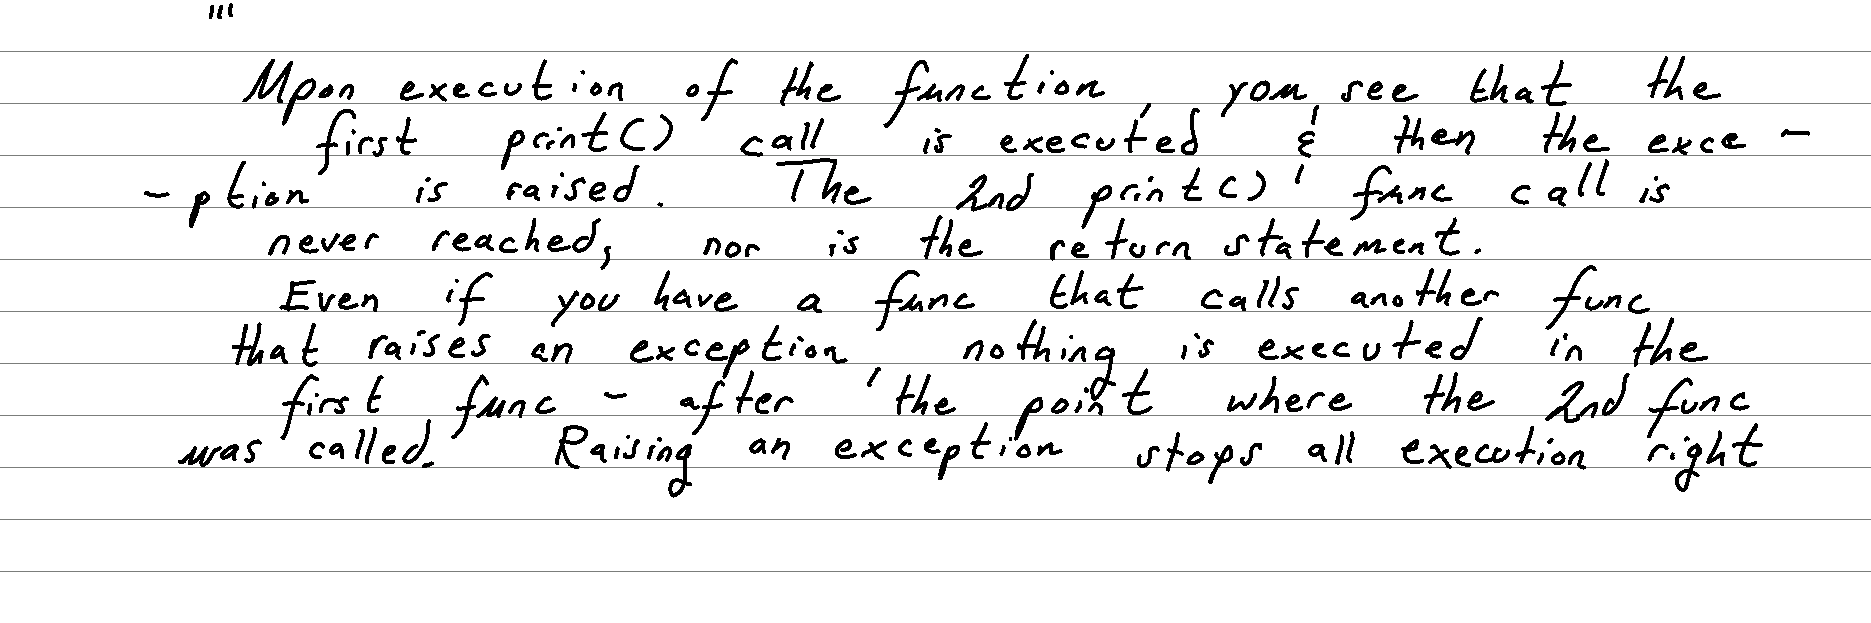 '''
Upon execution of the function, you see that the
first print() call is executed & then the exce -
- ption is raised. The 2nd print() func call is
never reached, nor is the return statement.
Even if you have a func that calls another func
that raises an exception, nothing is executed in the
first func - after the point where the 2nd func
was called. Raising an exception stops all execution right